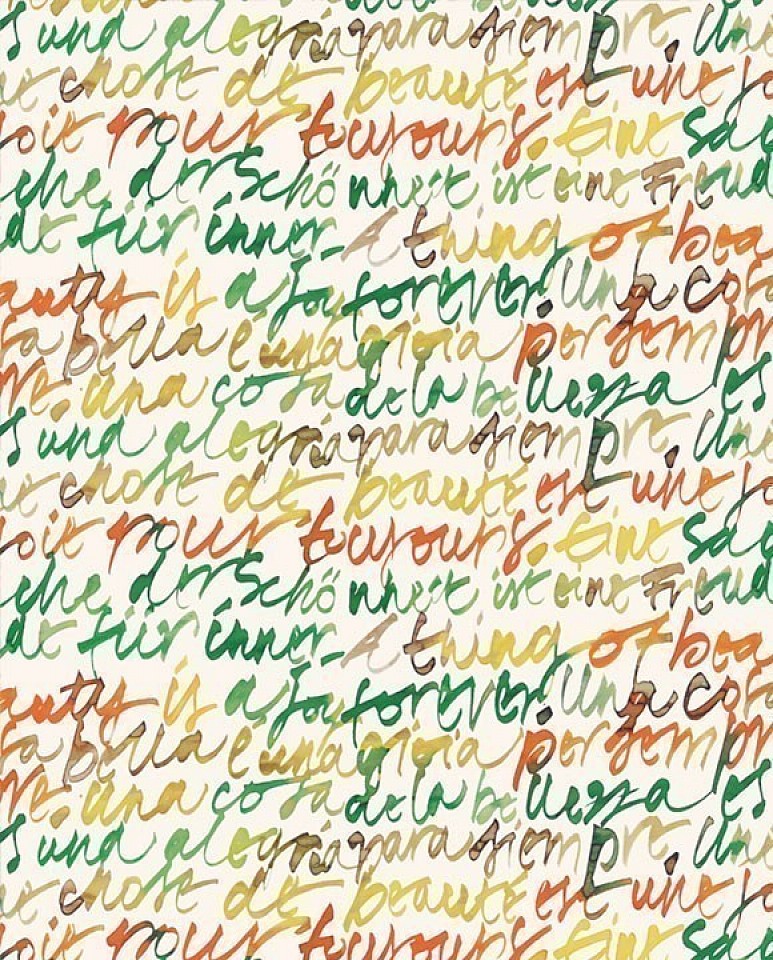 s und alegria para siempre. Une
e chose de beauté est une jo
oie pour toujours. Eine Sac
che der Schönheit ist eine Freud
de für immer. A thing of bea
auty is a joy forever. Una cosa
sa bella è una gioia per sempr
re. Una cosa de la belleza es
s und alegria para siempre. Une
e chose de beauté est une jo
oie pour toujours. Eine Sac
che der Schönheit ist eine Freud
de für immer. A thing of bea
auty is a joy forever. Una cosa
sa bella è una gioia per sempr
re. Una cosa de la belleza es
s und alegria para siempre. Une
e chose de beauté est une jo
oie pour toujours. Eine Sac